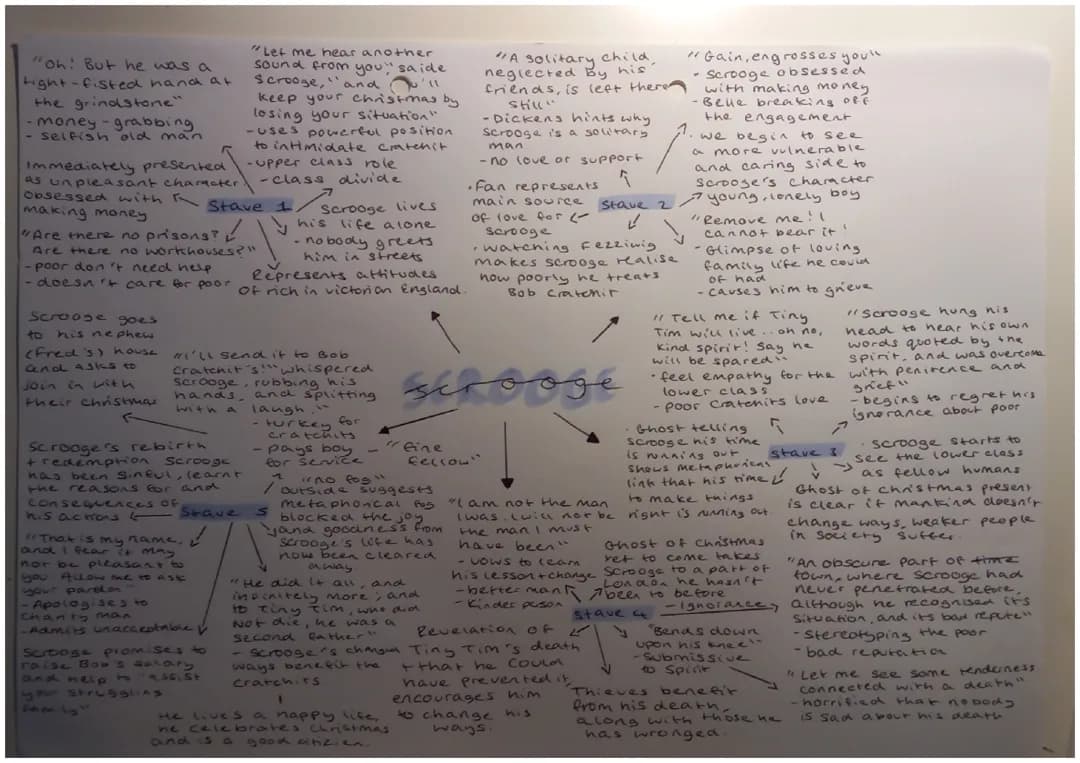 "Oh! But he was a
tight-fisted hand at
the grindstone"
- money-grabbing
- selfish old man
Immediately presented
as unpleasant character
obsessed with
making money
"Are there no prisons?
Are there no workhouses?"
- poor don't need help
- doesn't care for poor
"Let me hear another
sound from you", saide
Scrooge, "and you'll
keep your christmas by
losing your situation"
- uses powerful position
to intimidate cratchit
- upper class role
- class divide
Stave 1
Scrooge lives
his life alone
- nobody greets
him in streets
Represents attitudes
of rich in victorian England.
"A solitary child,
neglected by his
friends, is left there
still"
- Dickens hints why
Scrooge is a solitary
man
- no love or support
• Fan represents
main source
of love for
scrooge
• watching Fezziwig
makes scrooge realise
how poorly he treats
Bob Cratchit
Stave 2
"Gain, engrosses you"
• Scrooge obsessed
with making money
- Belle breaking off
the engagement
• we begin to see
a more vulnerable
and caring side to
scrooge's character
- young, lonely boy
"Remove me! I
cannot bear it!
- Glimpse of loving
family life he could
of had
- causes him to grieve
SCROOGE
Scrooge goes
to his nephew
(Fred's) house
and asks to
join in with
their christmas
"I'll send it to Bob
Cratchit's!" whispered
Scrooge, rubbing his
hands, and splitting
with a laugh."
- turkey for
cratchits
- pays boy
for service
- "fine
fellow"
Scrooge's rebirth
+ redemption Scrooge
has been sinful, learnt
the reasons for and
consequences of
his actions
Stave 5
"no fog"
outside suggests
metaphorical fog
blocked the joy
and goodness from
scrooge's life has
now been cleared
away
"That is my name,
and I fear it may
not be pleasant to
you Allow me to ask
your pardon"
- Apologises to
charity man
- Admits unacceptable
Scrooge promises to
raise Bob's salary
and help to "assist
your struggling
family"
"He did it all, and
infinitely more; and
to Tiny Tim, who did
Not die, he was a
second father"
- Scrooge's changed
ways benefit the
cratchits
He lives a happy life,
he celebrates christmas
and is a good citizen.
"Tell me if Tiny
Tim will live .. oh no,
kind spirit! Say he
will be spared"
• feel empathy for the
lower class
- poor Cratchits love
"Scrooge hung his
head to hear his own
words quoted by the
spirit, and was overcome
with penitence and
grief"
- begins to regret his
ignorance about poor
Stave 3
• Ghost telling
scrooge his time
is running out
shows metaphorical
link that his time
to make things
right is running out.
• Scrooge starts to
see the lower class
as fellow humans
Ghost of Christmas present
is clear if mankind doesn't
change ways, weaker people
in society suffer.
"I am not the man
I was. I will not be
the man I must
have been"
- vows to learn
his lesson + change
- better man
- Kinder person
Ghost of Christmas
yet to come takes
Scrooge to a part of
London he hasn't
been to before
- Ignorance
Stave 4
"An obscure part of time
town, where Scrooge had
never penetrated before,
although he recognised its
situation, and its bad repute"
- stereotyping the poor
- bad reputation
Revelation of
Tiny Tim's death
+ that he could
have prevented it,
encourages him
to change his
ways.
"Bends down
upon his knee"
- submissive
to spirit
Thieves benefit
from his death,
along with those he
has wronged.
"Let me see some tenderness
connected with a death"
- horrified that nobody
is sad about his death